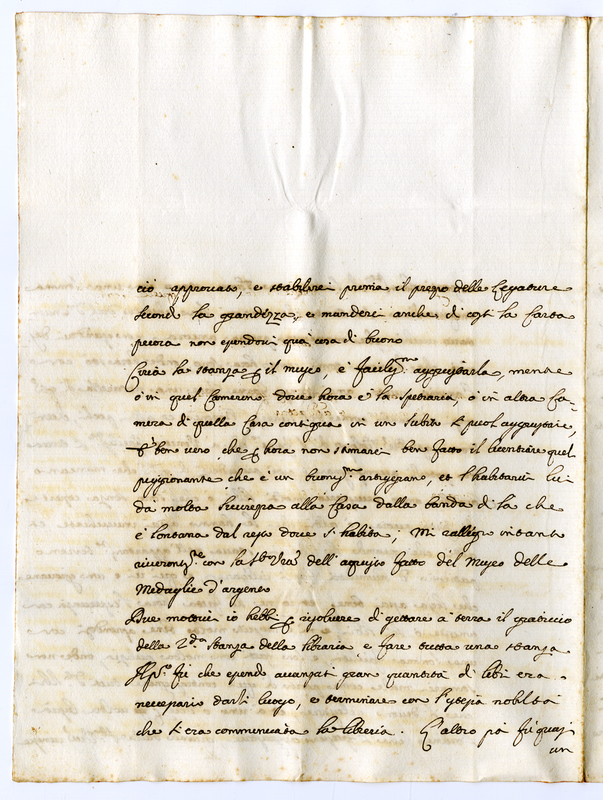 ciò approvato, e stabilirei prima il prezzo delle legature
secondo la grandezza, e manderei anche di costì la Carta
pecora non essendovi quà cosa di buono
Circa la stanza p il museo, è facilissmo aggiustarla, mentre
ò in quel Camerino dove hora è la speziaria, ò in altra Ca-
mera di quella Casa contigua in un subito si puol aggiustare,
è ben vero, che p hora non stimarei ben fatto il licentiare quel
piggionante che è un buonissmo artiggiano, et l'habitarvi lui
dà molta sicurezza alla Casa dalla banda di là che
è lontana dal resto dove si habita; Mi rallegro intanto
con la dell'acquisto fatto del Museo delle
Medaglie d'argento
Due motivi io hebbi p risolvere di gettare à terra il
della 2da stanza della libraria, e fare tutta una stanza
Il po fù che essendo avanzati gran quantità di libri era
necessario darli luogo, e terminare con l'istessa nobiltà
che si era cominciata la libreria. L'altro poi fù quasi
un